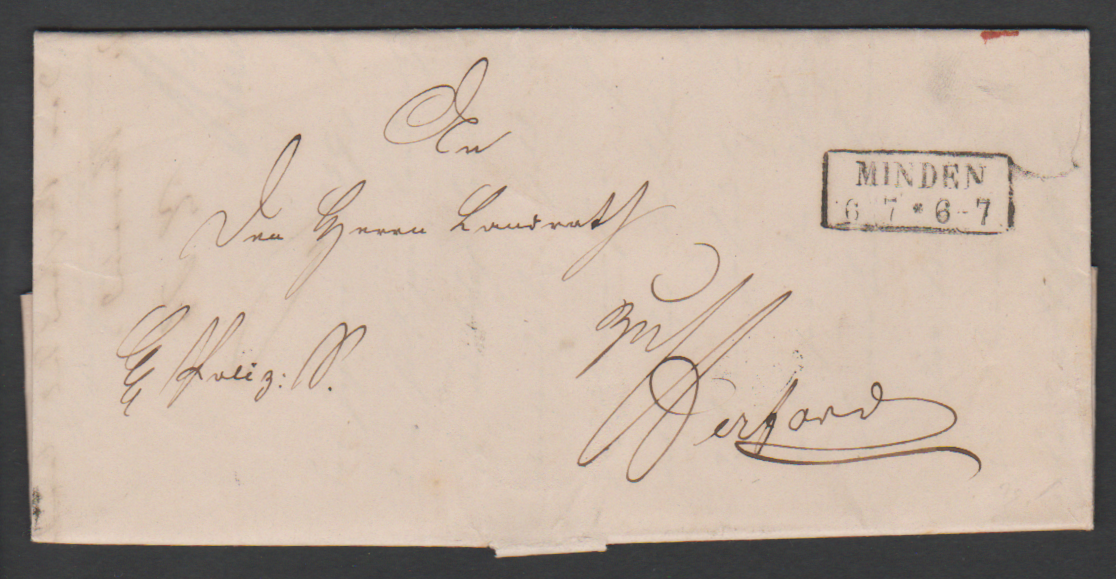 An
MINDEN
6 7 * 6-7
den Herrn Landrath
Poliz: S.
zu
Herford